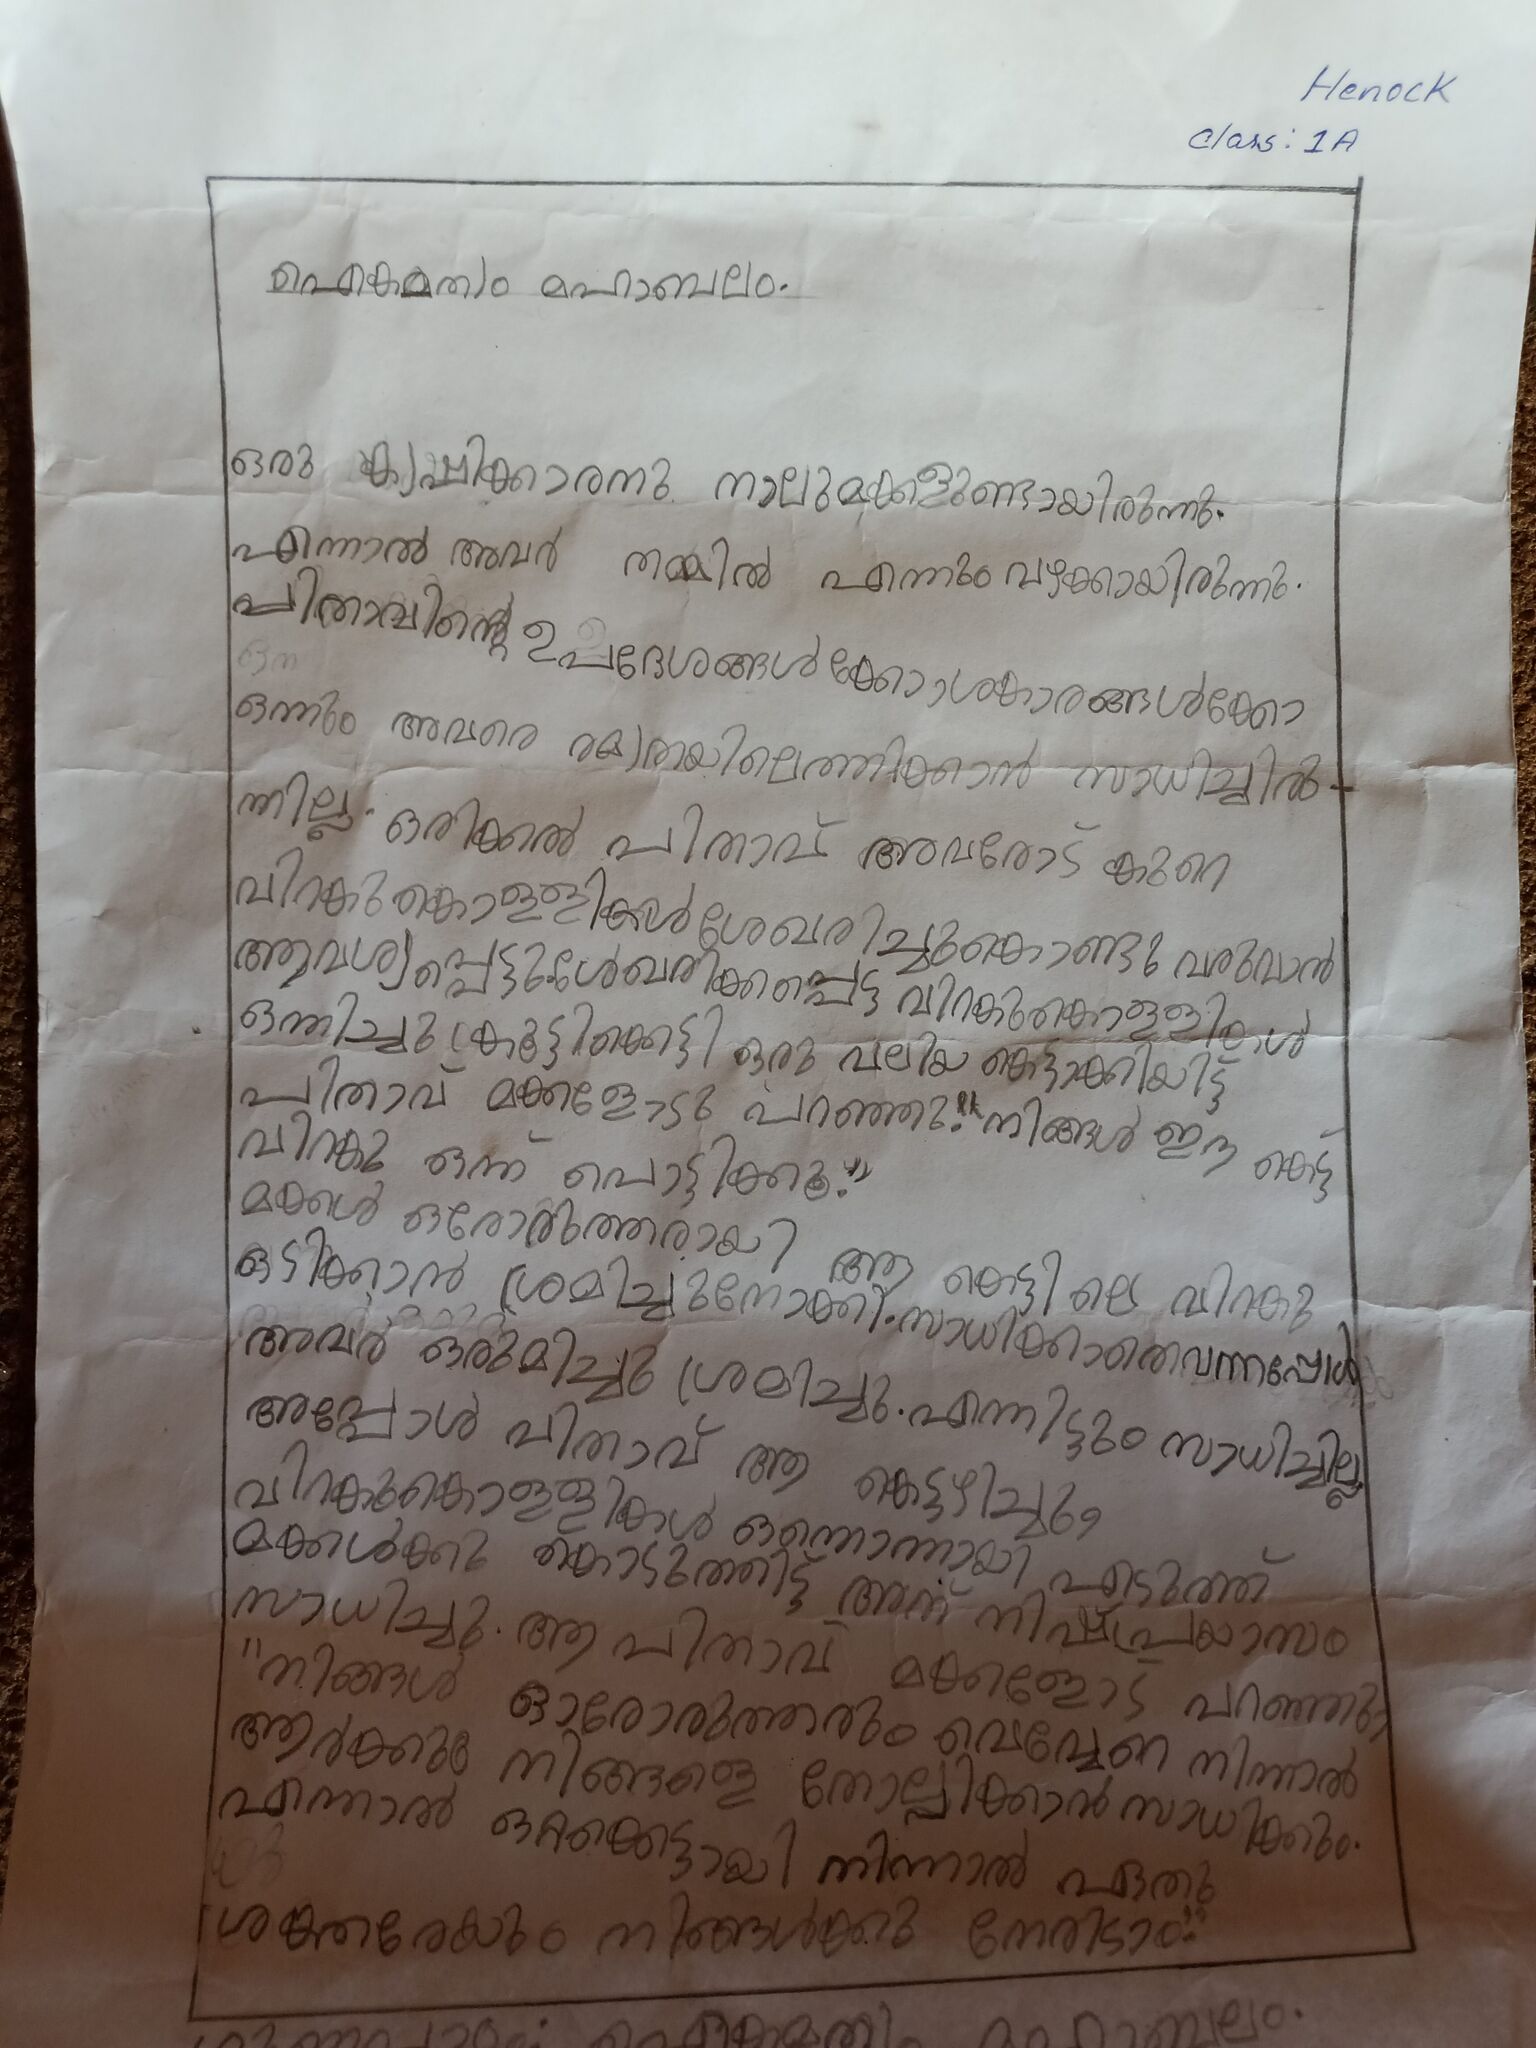 Henock
Class: 1A
ഐകമത്യം മഹാബലം.
ഒരു കൃഷിക്കാരനു നാലുമക്കളുണ്ടായിരുന്നു.
എന്നാൽ അവർ തമ്മിൽ എന്നും വഴക്കായിരുന്നു.
പിതാവിന്റെ ഉപദേശങ്ങൾക്കോ ശകാരങ്ങൾക്കോ
ഒന്നും അവരെ രമ്യതയിലെത്തിക്കാൻ സാധിച്ചിരു-
ന്നില്ല. ഒരിക്കൽ പിതാവ് അവരോട് കുറെ
വിറകുകൊള്ളികൾ ശേഖരിച്ചുകൊണ്ടു വരുവാൻ
ആവശ്യപ്പെട്ടു. ശേഖരിക്കപ്പെട്ട വിറകുകൊള്ളികൾ
ഒന്നിച്ചു കൂട്ടിക്കെട്ടി ഒരു വലിയ കെട്ടാക്കിയിട്ട്
പിതാവ് മക്കളോടു പറഞ്ഞു. "നിങ്ങൾ ഈ കെട്ട്
വിറകു ഒന്ന് പൊട്ടിക്കൂ."
മക്കൾ ഒരോരുത്തരായി ആ കെട്ടിലെ വിറകു
ഒടിക്കാൻ ശ്രമിച്ചുനോക്കി. സാധിക്കാതെവന്നപ്പോൾ
അവർ ഒരുമിച്ചു ശ്രമിച്ചു. എന്നിട്ടും സാധിച്ചില്ല
അപ്പോൾ പിതാവ് ആ കെട്ടഴിച്ചു,
വിറകുകൊള്ളികൾ ഒന്നൊന്നായി എടുത്ത്
മക്കൾക്കു കൊടുത്തിട്ട് അത് നിഷ്പ്രയാസം
സാധിച്ചു. ആ പിതാവ് മക്കളോട് പറഞ്ഞു,
"നിങ്ങൾ ഓരോരുത്തരും വെവ്വേറെ നിന്നാൽ
ആർക്കും നിങ്ങളെ തോല്പിക്കാൻ സാധിക്കും.
എന്നാൽ ഒറ്റക്കെട്ടായി നിന്നാൽ ഏതു
ശക്തരേയും നിങ്ങൾക്കു നേരിടാം."
ഗുണപാഠം: ഐകമത്യം മഹാബലം.